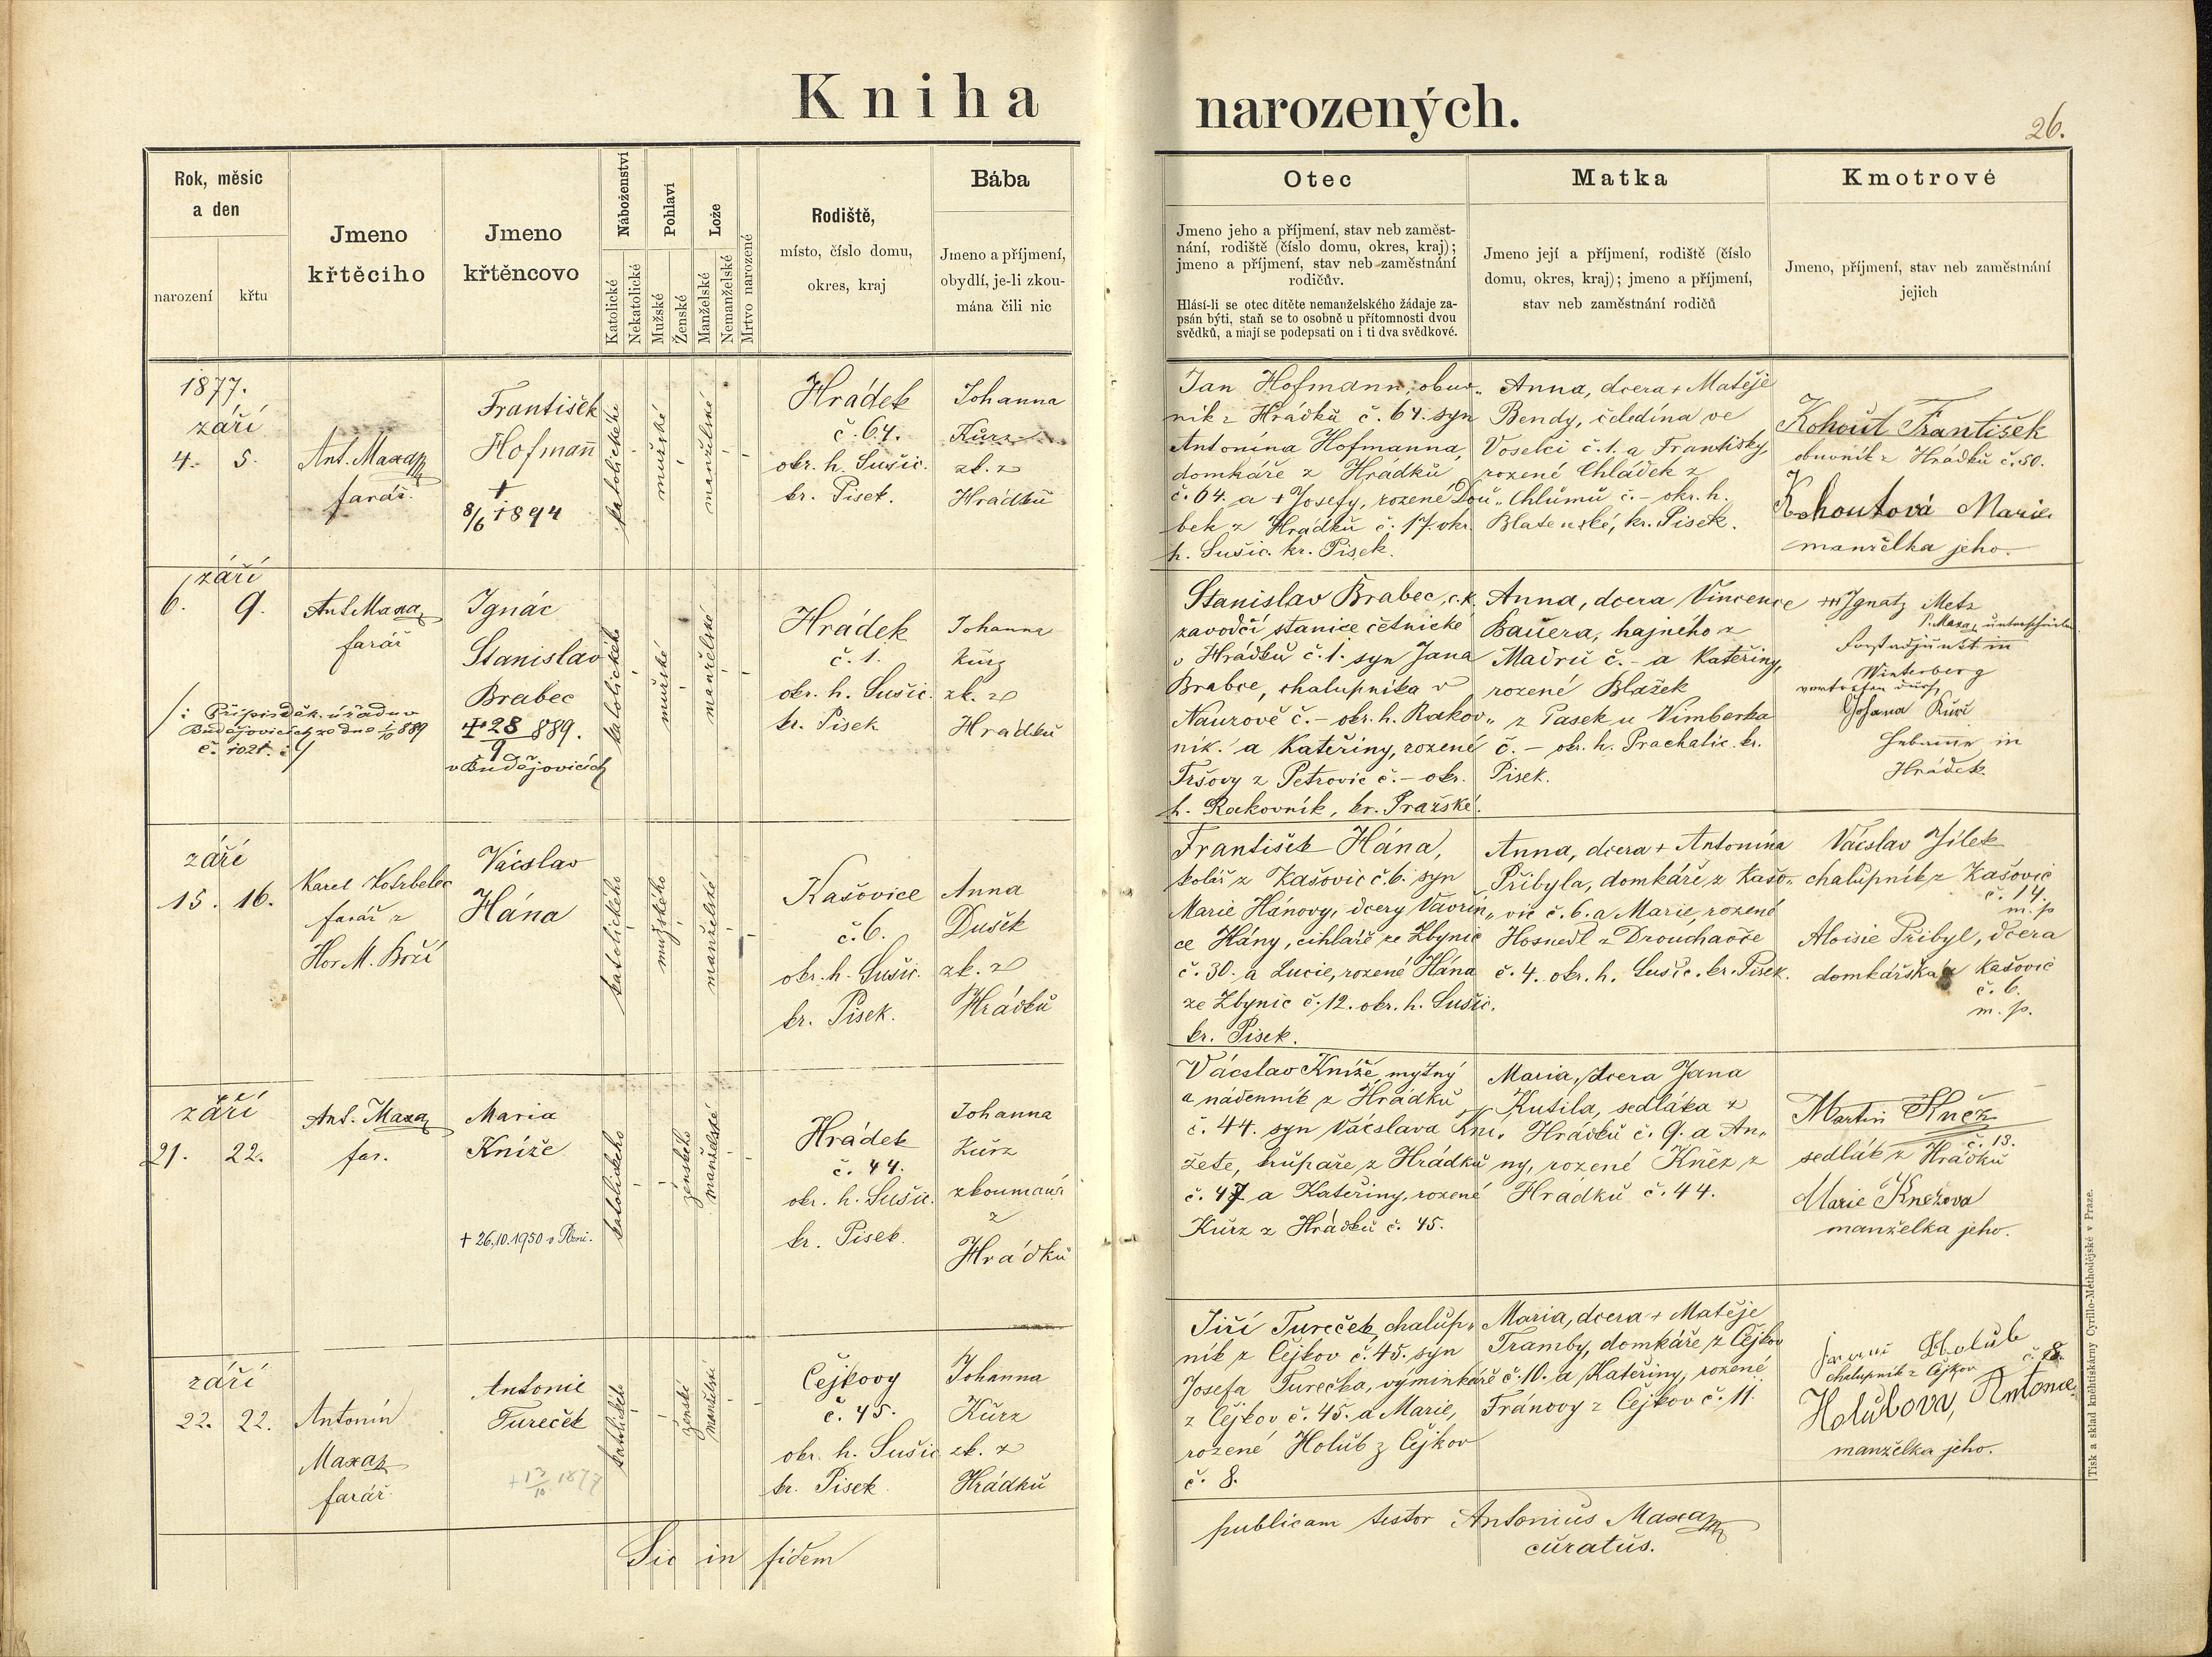 Kniha narozených.
26.
Rok, měsíc
a den
narození
křtu
Jmeno
křtěcího
Jmeno
křtěncovo
Náboženství
Katolické
Nekatolické
Pohlaví
Mužské
Ženské
Lože
Manželské
Nemanželské
Mrtvo narozené
Rodiště,
místo, číslo domu,
okres, kraj
Bába
Jmeno a příjmení,
obydlí, je-li zkou-
mána čili nic
Otec
Jmeno jeho a příjmení, stav neb zaměst-
nání, rodiště (číslo domu, okres, kraj);
jmeno a příjmení, stav neb zaměstnání
rodičův.
Hlásí-li se otec dítěte nemanželského žádaje za-
psán býti, staň se to osobně u přítomnosti dvou
svědků, a mají se podepsati on i ti dva svědkové.
Matka
Jmeno její a příjmení, rodiště (číslo
domu, okres, kraj); jmeno a příjmení,
stav neb zaměstnání rodičů
Kmotrové
Jmeno, příjmení, stav neb zaměstnání
jejich
1877.
září
4. 5.
Ant. Maxa
farář.
František
Hofmann
+
8/6 1894
katolického
mužské
manželské
Hrádek
č. 64.
okr. h. Sušic.
kr. Písek.
Johanna
Kürz
zk. z
Hrádku
Jan Hofmann, obuv„
ník z Hrádků č. 64. syn
Antonína Hofmanna,
domkáře z Hrádků
č. 64. a + Josefy, rozené Dou„
bek z Hrádků č. 17. okr.
h. Sušic. kr. Písek.
Anna, dcera + Matěje
Bendy, čeledína ve
Voselci č. 1. a Františky,
rozené Chládek z
Chlůmů č. – okr. h.
Blatenské, kr. Písek.
Kohout František
obuvník z Hrádků č. 50.
Kohoutová Marie
manželka jeho.
září
6. 9.
Ant. Maxa
farář
/: Přípis děk. úřadu v
Budějovicích ze dne 1/10 889
č. 1021. :/
Ignác
Stanislav
Brabec
+ 28/9 889.
v Budějovicích
katolického
mužské
manželské
Hrádek
č. 1.
okr. h. Sušic.
kr. Písek
Johanna
Kürz
zk. z
Hrádků
Stanislav Brabec, c. k.
zavodčí stanice četnické
v Hrádků č. 1. syn Jana
Brabce, chalupníka v
Naurově č. – okr. h. Rakov„
ník. a Kateřiny, rozené
Tršovy z Petrovic č. – okr.
h. Rakovník, kr. Pražské.
Anna, dcera Vincence
Bauera, hajného z
Madrů č. – a Kateřiny,
rozené Blažek
z Pasek u Vimberka
č. – okr. h. Prachatic. kr.
Písek.
+++ Ignatz Metz
P. Maxa, unterschrieben
Forstadjunkt in
Winterberg
vertreten durch
Johana Kürz
Hebamme in
Hrádek.
září
15. 16.
Karel Kotrbelec
farář z
Hor M. Boží
Vácslav
Hána
katolického
mužského
manželské
Kašovice
č. 6.
okr. h. Sušic.
kr. Písek.
Anna
Dušek
zk. z
Hrádků
František Hána,
kolář z Kašovic č. 6. syn
Marie Hánovy, dcery Vavřin„
ce Hány, cihláře ze Zbynic
č. 30. a Lucie, rozené Hána
ze Zbynic č. 12. okr. h. Sušic.
kr. Písek.
Anna, dcera + Antonína
Přibyla, domkáře z Kašo„
vic č. 6. a Marie, rozené
Hosnedl z Drouchaoče
č. 4. okr. h. Sušic. kr. Písek.
Vácslav Jílek
chalupník z Kašovic
č. 14.
m. p
Aloisie Přibyl, dcera
domkářská z Kašovic
č. 6.
m. p.
září
21. 22.
Ant. Maxa
far.
Maria
Kníže
+ 26.10.1950 v Plzni.
katolického
ženského
manželské
Hrádek
č. 44.
okr. h. Sušic.
kr. Písek.
Johanna
Kürz
zkoumaná
z
Hrádků
Vácslav Kníže, mýtný
a nádenník z Hrádků
č. 44. syn Vácslava Kní„
žete, krůpaře z Hrádků
č. 47 a Kateřiny, rozené
Kürz z Hrádků č. 45.
Maria, dcera Jana
Kutila, sedláka z
Hrádků č. 9. a An„
ny, rozené Kněz z
Hrádků č. 44.
Martin Kněz
č. 13.
sedlák z Hrádků
Marie Knězova
manželka jeho.
září
22. 22.
Antonín
Maxa
farář
Antonie
Tureček
+ 13/10 1877
katolického
ženské
manželské
Čejkovy
č. 45.
okr. h. Sušic
kr. Písek
Johanna
Kürz
zk. z
Hrádků
Jiří Tureček, chalup„
ník z Čejkov č. 45. syn
Josefa Turečka, výminkáře
z Čejkov č. 45. a Marie,
rozené Holub z Čejkov
č. 8.
Maria, dcera + Matěje
Tramby, domkáře z Čejkov
č. 10. a Kateřiny, rozené
Tránovy z Čejkov č. 11.
Holub
chalupník z Čejkov č. 8.
Holubova, Antonie,
manželka jeho.
Sic in fidem publicam testor Antonius Maxa
curatus.
Tisk a sklad knihtiskárny Cyrillo-Methodějské v Praze.